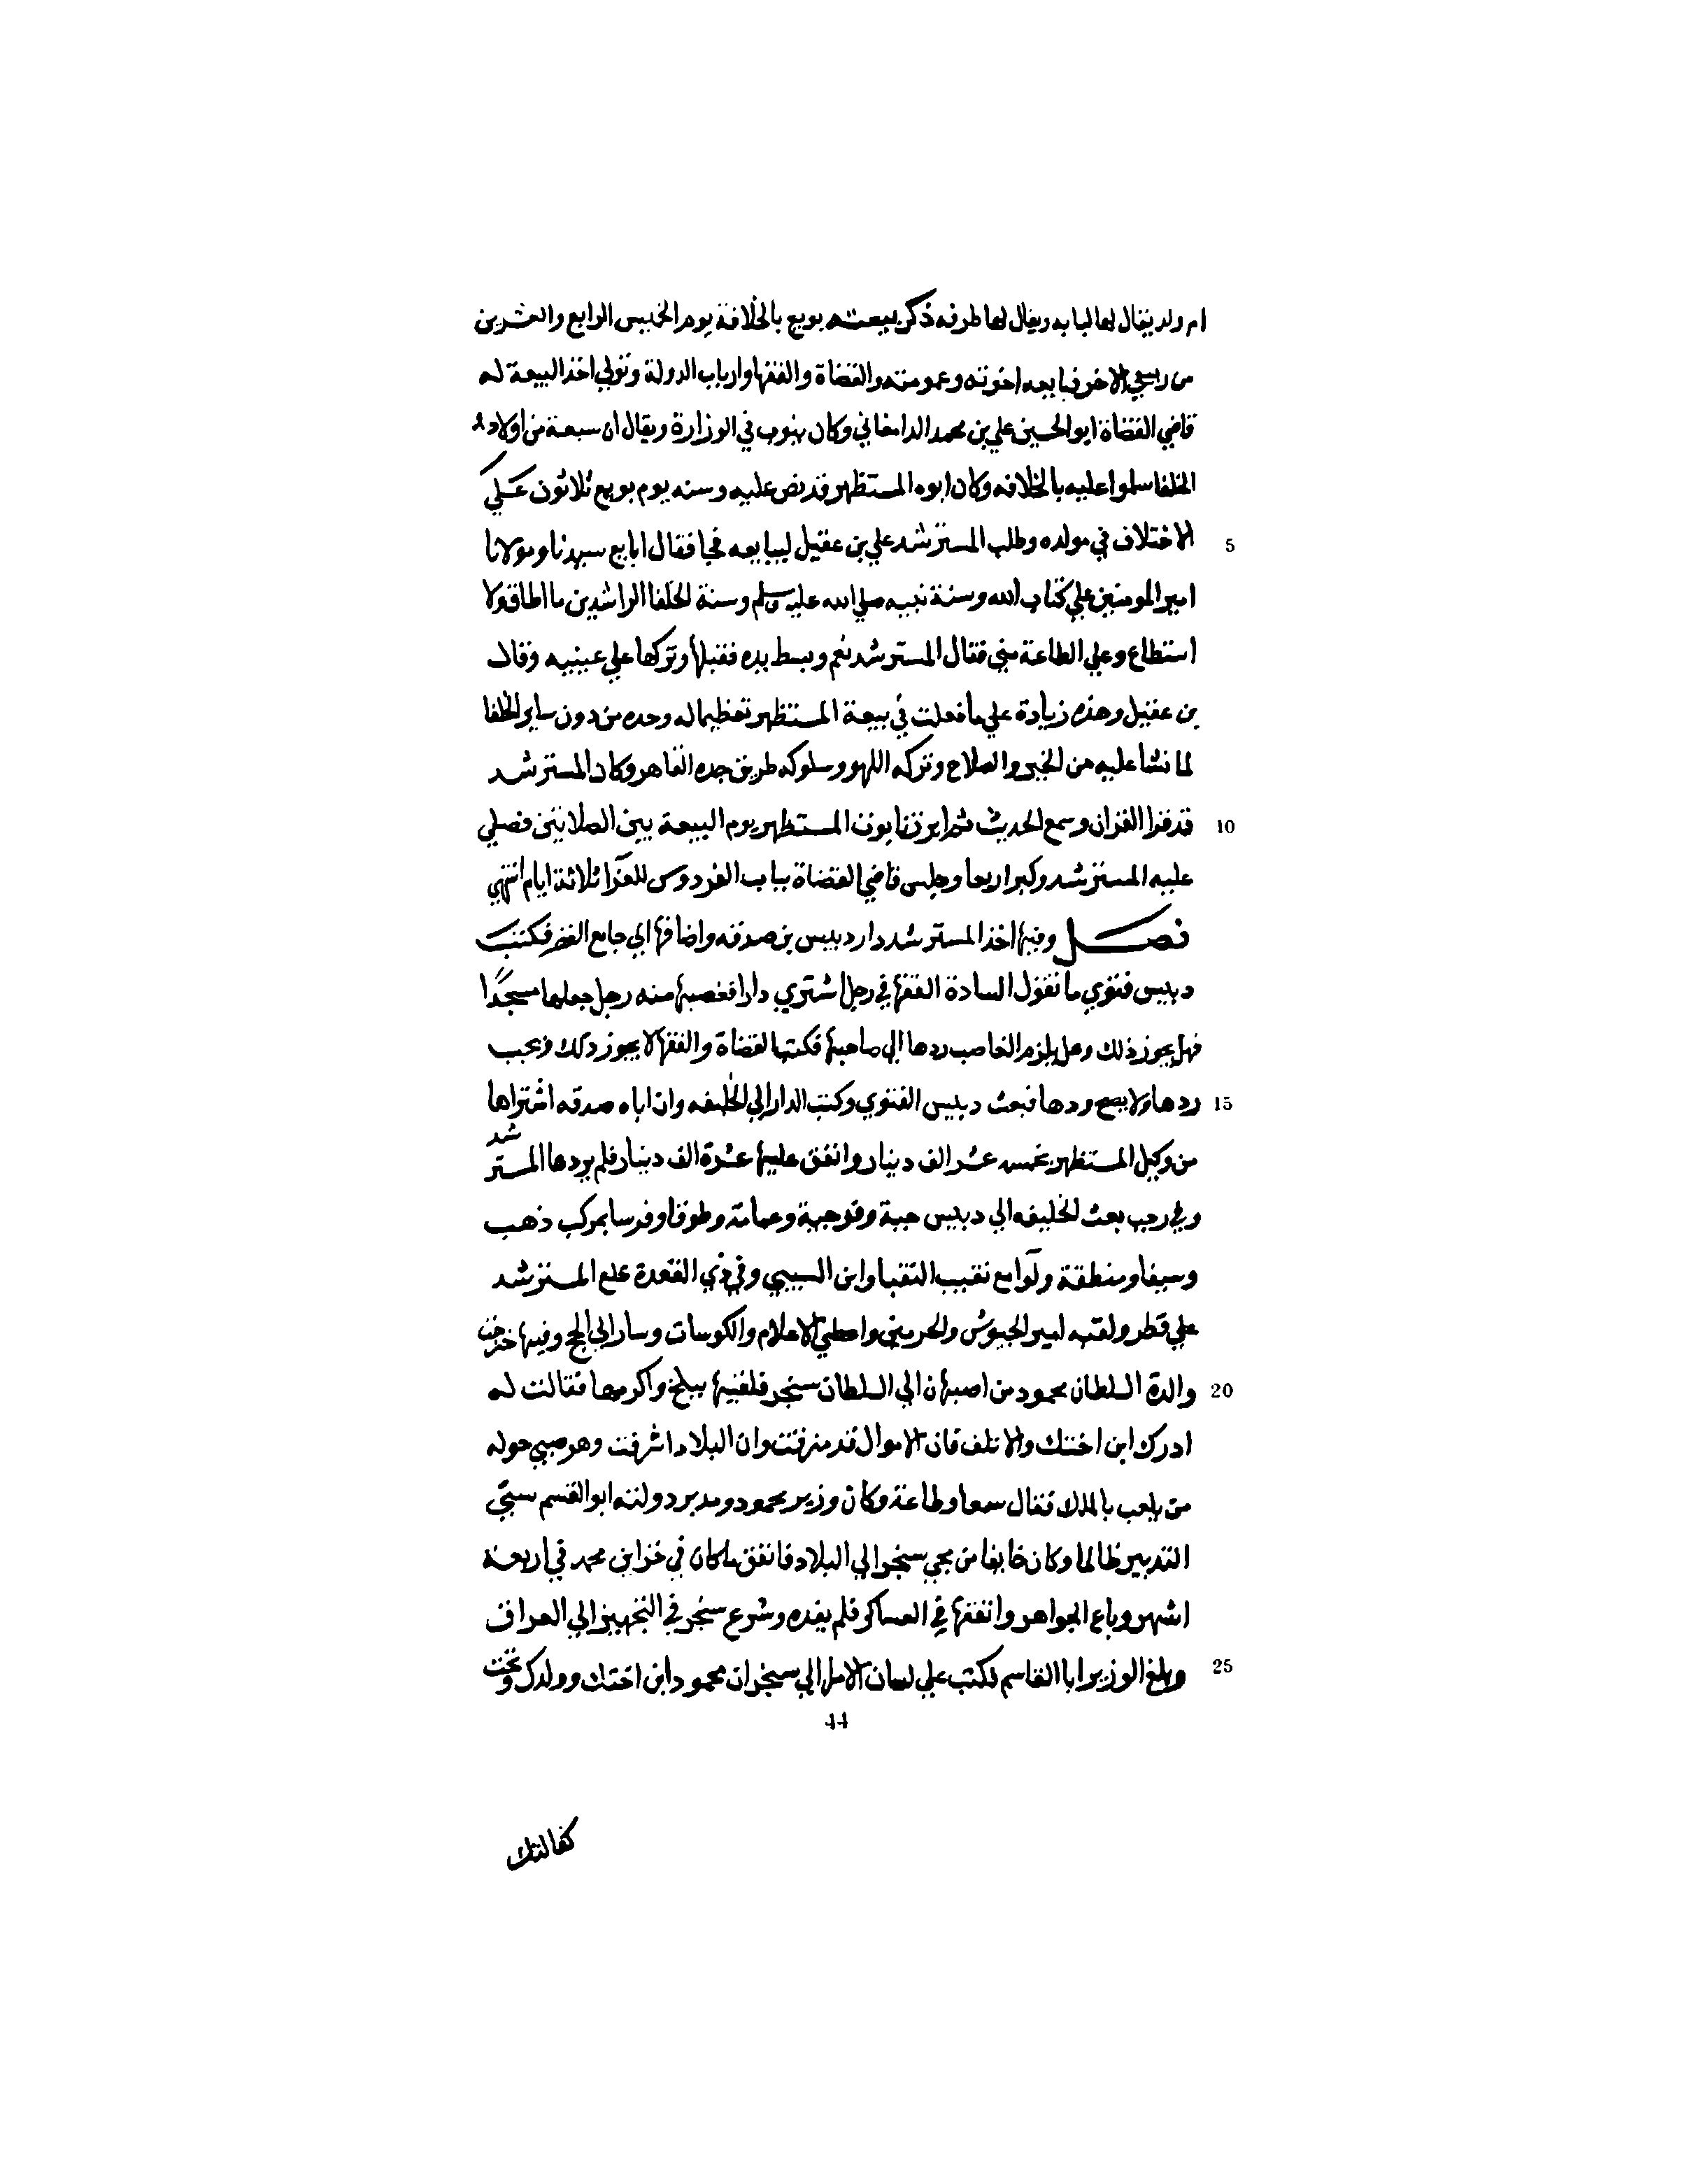 ام ولد يقال لها لبابه ويقال لها طرفه ذكر بيعته بويع بالخلافة يوم الخميس الرابع والعشرين
من ربيع الاخر فبايعه اخوته وعمومته والقضاة والفقها وارباب الدولة وتولي اخذ البيعة له
قاضي القضاة ابو الحسين علي بن محمد الدامغاني وكان ينوب في الوزارة ويقال ان سبعة من اولاد
الخلفا سلموا عليه بالخلافه وكان ابوه المستظهر قد نص عليه وسنه يوم بويع ثلاثون علي
الاختلاف في مولده وطلب المسترشد علي بن عقيل ليبايعه فجا فقال ابايع سيدنا ومولانا 5
امير المومنين علي كتاب الله وسنة نبيه صلي الله عليه وسلم وسنة الخلفا الراشدين ما اطاق ولا
استطاع وعلي الطاعة مني فقال المسترشد نعم وبسط يده فقبلها وتركها علي عينيه وقال
بن عقيل وهذه زيادة علي ما فعلت في بيعة المستظهر تعظيما له وحده من دون ساير الخلفا
لما نشا عليه من الخير والصلاح وتركه اللهو وسلوكه طريق جده القاهر وكان المسترشد
قد قرا القران وسمع الحديث ثم ابرز تابوت المستظهر يوم البيعة بين الصلاتين فصلي 10
عليه المسترشد وكبر اربعا وجلس قاضي القضاة بباب الفردوس للعزا ثلاثة ايام انتهي
فصل وفيها اخذ المسترشد دار دبيس بن صدقه واضافها الي جامع القصر فكتب
دبيس فتوي ما تقول السادة الفقها في رجل اشتري دارا فغصبها منه رجل جعلها مسجدا
فهل يجوز ذلك وهل يلزم الغاصب ردها الي صاحبها فكتب القضاة والفقها لا يجوز ذلك ويجب
ردها ولا يصح ودها فبعث دبيس الفتوي وكتب الدار الي الخليفه وان اباه صدقه اشتراها 15
من وكيل المستظهر بخمسه عشر الف دينار وانفق عليها عشرة الف دينار فلم يردها المسترشد
وفي رجب بعث الخليفه الي دبيس جبة وفرجية وعمامة وطوقا وفرسا بمركب ذهب
وسيفا ومنطقة ولوا مع نقيب النقبا وابن السيبي وفي ذي القعدة خلع المسترشد
علي قطر ولقبه امير الجيوش والحرمين واعطي الاعلام والكوسات وسار الي الحج وفيها خرجت
والدة السلطان محمود من اصبهان الي السلطان سنجر فلقيها ببلخ واكرمها فقالت له 20
ادرك ابن اختك والا تلف فان الاموال قد مزقت وان البلاد اشرفت وهو صبي حوله
من يلعب بالملك فقال سمعا وطاعة وكان وزير محمود ومدبر دولته ابو القسم سيي
التدبير ظالما وكان خايفا من مجي سنجر الي البلاد فانفق ما كان في خزاين محمد في اربعة
اشهر وباع الجواهر وانفقها في العساكر فلم يفده وشرع سنجر في التجهيز الي العراق
وبلغ الوزير ابا القاسم فكتب علي لسان الامل الي سنجر ان محمود ابن اختك وولدك وتحت 25
44
كفالتك